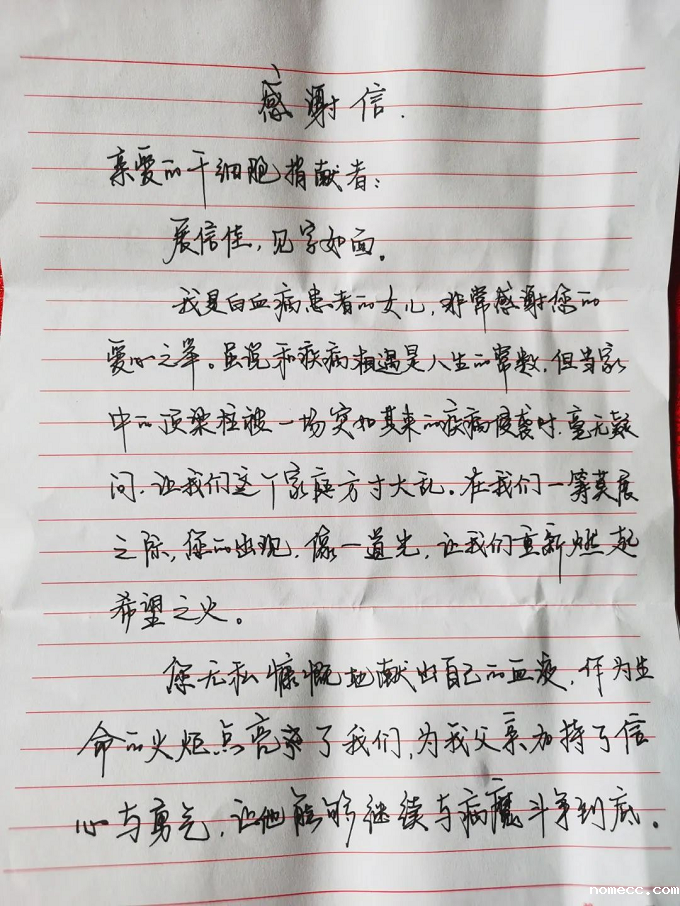 感谢信.
亲爱的干细胞捐献者:
展信佳,见字如面。
我是白血病患者的女儿,非常感谢您的
爱心之举。虽说和疾病相遇是人生的常数,但当家
中的顶梁柱被一场突如其来的疾病侵袭时,毫无疑
问,让我们这个家庭方寸大乱。在我们一筹莫展
之际,您的出现,像一道光,让我们重新燃起
希望之火。
您无私慷慨地献出自己的血液,作为生
命的火炬点亮了我们,为我父亲加持了信
心与勇气,让他能够继续与病魔斗争到底。
nomecc.com